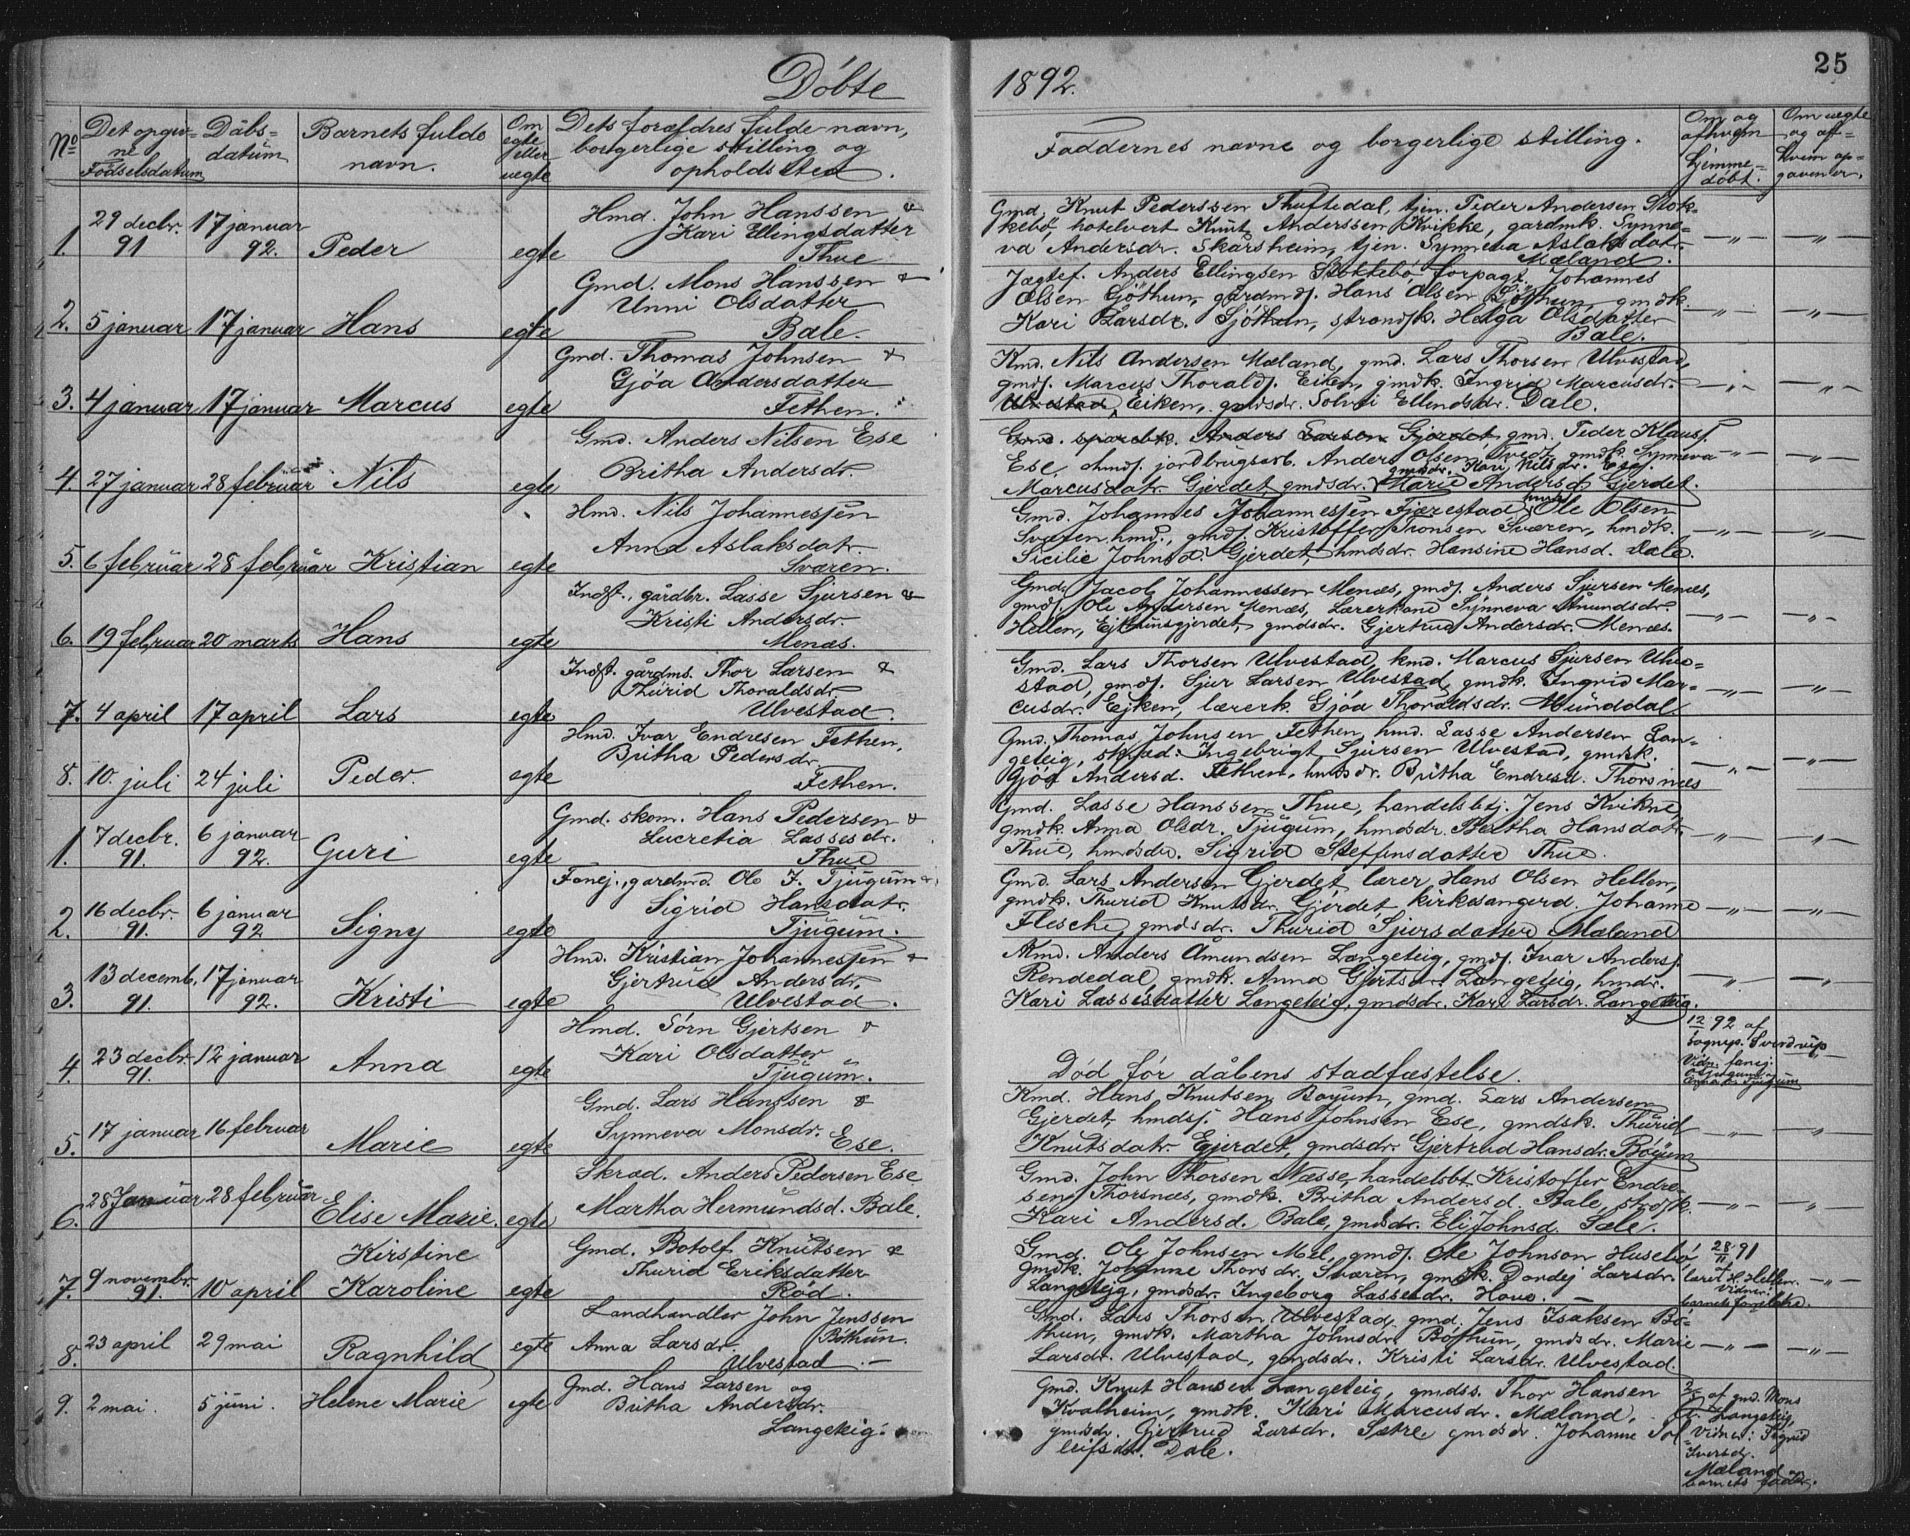 Döbte
1892.
25
No
Det opgiv-
ne
Födselsdatum
Dåbs-
datum
Barnets fulde
navn.
Om
egte
eller
uegte
Dets forældres fulde navn,
borgerlige stilling og
opholdssted.
Faddernes navne og borgerlige stilling.
Om og
af hvem
hjemme-
döbt.
Om uegte
og af-
hvem op-
gaven er.
1. 29 decbr. 91 17 januar 92. Peder egte
Hmd. John Hanssen &
Kari Ellingsdatter
Thue
Gmd. Knut Pederssen Thuftedal, tjen. Peder Andersen Stok-
kebö, hotelvert Knut Anderssen Kvikne, gardmk. Synne-
va Andersdr. Skarsheim, tjen. Synneva Aslaksdatr.
Mæland.
2. 5 januar 17 januar Hans egte
Gmd. Mons Hanssen &
Unni Olsdatter
Bale.
Jægtef. Anders Ellingsen Stokkebö, forpagt. Johannes
Olsen Sjöthun, gårdmds. Hans Olsen Sjöthun, gmdk.
Kari Larsdr. Sjöthun, strandsk. Helga Olsdatter
Bale.
3. 4 januar 17 januar Marcus egte
Gmd. Thomas Johnsen &
Gjöa Andersdatter
Fethen.
Kmd. Nils Andersen Mæland, gmd. Lars Thorsen Ulvestad,
gmds. Marcus Thoralds. Eiken, gmdk. Ingrid Marcusdr.
Ulvestad, Eiken, gmdsdr. Solvei Ellendsdr. Dale.
4. 27 januar 28 februar Nils egte
Gmd. Anders Nilsen Ese
Britha Andersdr.
Gmd. sparebk. Anders Larsen Gjerdet, gmd. Peder Klaus.
Ese, hmds. jordbrugsarb. Anders Olsen Tvedt, gmdk. Synneva
gmdsdr. Kari Nilsdr. Ese.
Marcusdatr. Gjerdet, gmdsdr. Marie Andersd. Gjerdet.
5. 6 februar 28 februar Kristian egte
Hmd. Nils Johannessen
Anna Aslaksdatr.
Sværen.
Gmd. Johannes Johannessen Fjærestad, hmds. Ole Olsen
Sværen, hmd., gmds. Kristoffer Tronsen Sværen, hmdk.
Sicilie Johnsd. Gjerdet, hmdsdr. Hansine Hansd. Dale.
6. 19 februar 20 marts Hans egte
Indst., gårdbr. Lasse Sjursen &
Kristi Andersdr.
Menæs.
Gmd. Jacob Johannessen Menæs, gmds. Anders Sjursen Menæs,
gmds. Ole Andersen Menæs, Lærerkone Synneva Amundsdr.
Hellen, Ejthunsgjerdet, gmdsdr. Gjertrud Andersdr. Menæs.
7. 4 april 17 april Lars egte
Indst. gårdms. Thor Larsen &
Thurid Thoraldsdr.
Ulvestad.
Gmd. Lars Thorsen Ulvestad, kmd. Marcus Sjursen Ulve-
stad, gmds. Sjur Larsen Ulvestad, gmdk. Ingrid Mar-
cusdr. Ejken, lærerk. Gjöa Thoraldsdr. Munddal
8. 10. juli 24 juli Peder. egte
Hmd. Ivar Endresen Fethen,
Britha Pedersdr.
Fethen.
Gmd. Thomas Johnsen Fethen, hmd. Lasse Andersen Lan-
geteig, skrad. Ingebrigt Sjursen Ulvestad, gmdsk.
Gjöa Andersd. Fethen, hmdsdr. Britha Endresd. Thorsnæs
1. 7 decbr. 91. 6 januar 92. Guri egte
Gmd. skom. Hans Pedersen &
Lucretia Lassesdr.
Thue
Gmd. Lasse Hanssen Thue, handelsbtj. Jens Kvikne,
gmdk. Anna Olsdr. Tjugum, hmdsdr. Bertha Hansdatr.
Thue, hmdsdr. Sigrid Steffensdatter Thue.
2. 16 decbr. 91. 6 januar 92. Signy egte
Fanej., gardmd. Ole J. Tjugum &
Sigrid Hansdatr.
Tjugum.
Gmd. Lars Andersen Gjerdet, lærer Hans Olsen Hellen,
gmdk. Thurid Knutsdr. Gjerdet, kirkesangerd. Johanne
Flesche, gmdsdr. Thurid Sjursdatter Mæland
3. 13 decemb. 91. 17 januar 92. Kristi egte
Hmd. Kristian Johannessen &
Gjertrud Andersdr.
Ulvestad.
Kmd. Anders Åmundsen Langeteig, gmds. Ivar Anders.
Rendedal, gmdk. Anna Gjertsdr. Langeteig, hmdr.
Kari Lassesdatter Langeteig, gmdsdr. Kari Larsdr. Langeteig.
4. 23 decbr. 91. 12 januar Anna egte
Hmd. Sörn Gjertsen &
Kari Olsdatter
Tjugum.
Död för dåbens stadfæstelse.
12/1 92 af
sognep. Sverdrup
Vidn. fanej.
O. Tjugum
5. 17 januar 16 februar Marie egte
Gmd. Lars Hanssen &
Synneva Monsdr. Ese.
Kmd. Hans Knutsen Böyum, gmd. Lars Andersen
Gjerdet, hmdsj. Hans Johnsen Ese, gmdsk. Thurid
Knutsdatr. Gjerdet, gmdsdr. Gjertrud Hansdr. Böyum
6. 28 Januar 28 februar Elise Marie. egte
Skræd. Anders Pedersen Ese
Martha Hermundsd. Bale.
Gmd. John Thorsen Næsse, handelsbt. Kristoffer Endre-
sen Thorsnæs, gmdk. Britha Andersd. Bale, strdsk.
Kari Andersd. Bale, gmdsdr. Eli Johnsd. Sæle.
7. 9 novembr. 91. 10 april Kirstine Karoline egte
Gmd. Botolf Knutsen &
Thurid Eriksdatter
Röd.
Gmd. Ole Johnsen Mel, gmds. Ole Johnson Husebö,
gmdk. Johanne Thorsdr. Sværen, gmdk. Dordej Larsdr.
Langeteig, gmdsdr. Ingeborg Lassesdr. Hove.
28/11 91
lærer H. Hellen.
Vidner:
barnets forældre.
8. 23 april 29 mai Ragnhild egte
Landhandler John Jenssen
Böthun.
Anna Larsdr.
Ulvestad.
Gmd. Lars Thorsen Ulvestad, gmd. Jens Isaksen Bö-
thun, gmdk. Martha Johnsdr. Böthun, gmdsdr. Marie
Larsdr. Ulvestad, gmdsdr. Kristi Larsdr. Ulvestad.
9. 2 mai. 5 juni. Helene Marie egte
Gmd. Hans Larsen og
Britha Andersdr.
Langeteig.
Gmd. Knut Hansen Langeteig, gmdss. Thor Hansen
Kvalheim, gmdk. Kari Marcusdr. Mæland,
gmdsdr. Gjertrud Larsdr. Sætre gmdsdr. Johanne Sol-
leifsdr. Dale.
af gmd. Mons
Langeteig,
Vidner: Sigrid
Iversdr.
Mæland
barnets fader.